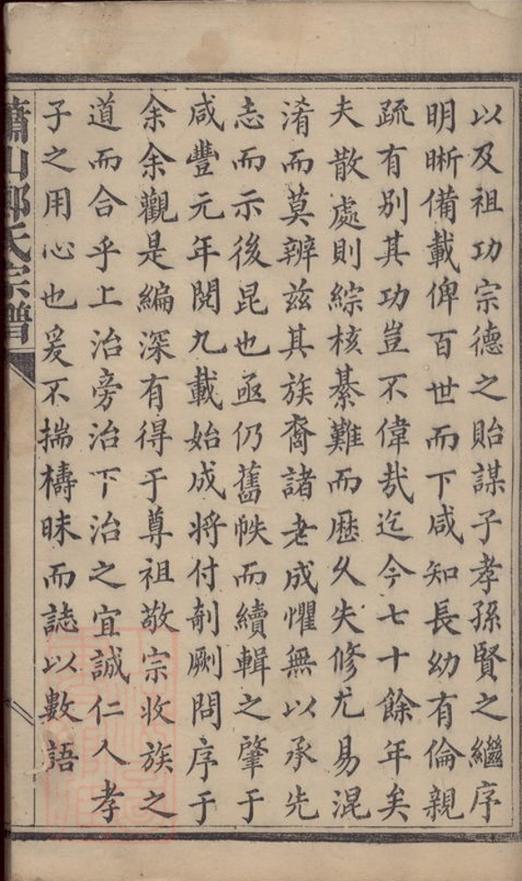 以及祖功宗德之貽謀子孝孫賢之繼序
明晰備載俾百世而下咸知長幼有倫親
疏有別其功豈不偉哉迄今七十餘年矣
夫散處則綜核綦難而歷久失修尤易混
淆而莫辨兹其族裔諸老成懼無以承先
志而示後昆也亟仍舊帙而續輯之肇于
咸豐元年閱九載始成將付剞劂問序于
余余觀是編深有得于尊祖敬宗收族之
道而合乎上治旁治下治之宜誠仁人孝
子之用心也爰不揣檮昧而誌以數語
蕭山郭氏宗譜